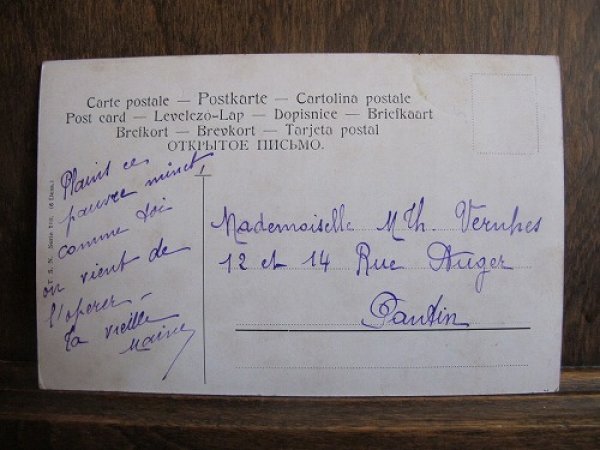 Carte postale — Postkarte — Cartolina postale
Post card — Levelezö-Lap — Dopisnice — Briefkaart
Brefkort — Brevkort — Tarjeta postal
ОТКРЫТОЕ ПИСЬМО.
Plains ce
pauvre minet
comme toi
on vient de
l'opérer —
Ta vieille
Mademoiselle M Th. Vernhes
12 et 14 Rue Auger
Pantin